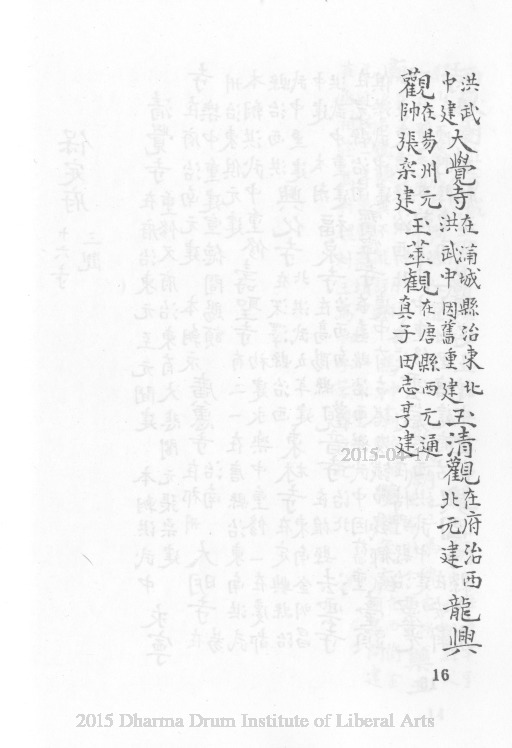 洪武
中建
大覺寺
在滿城縣治東北
洪武中因舊重建
玉清觀
在府治西
北元建
龍興
觀
在易州元
帥張柔建
玉華觀
在唐縣西元通
真子田志亨建
16
2015-04-17
2015 Dharma Drum Institute of Liberal Arts